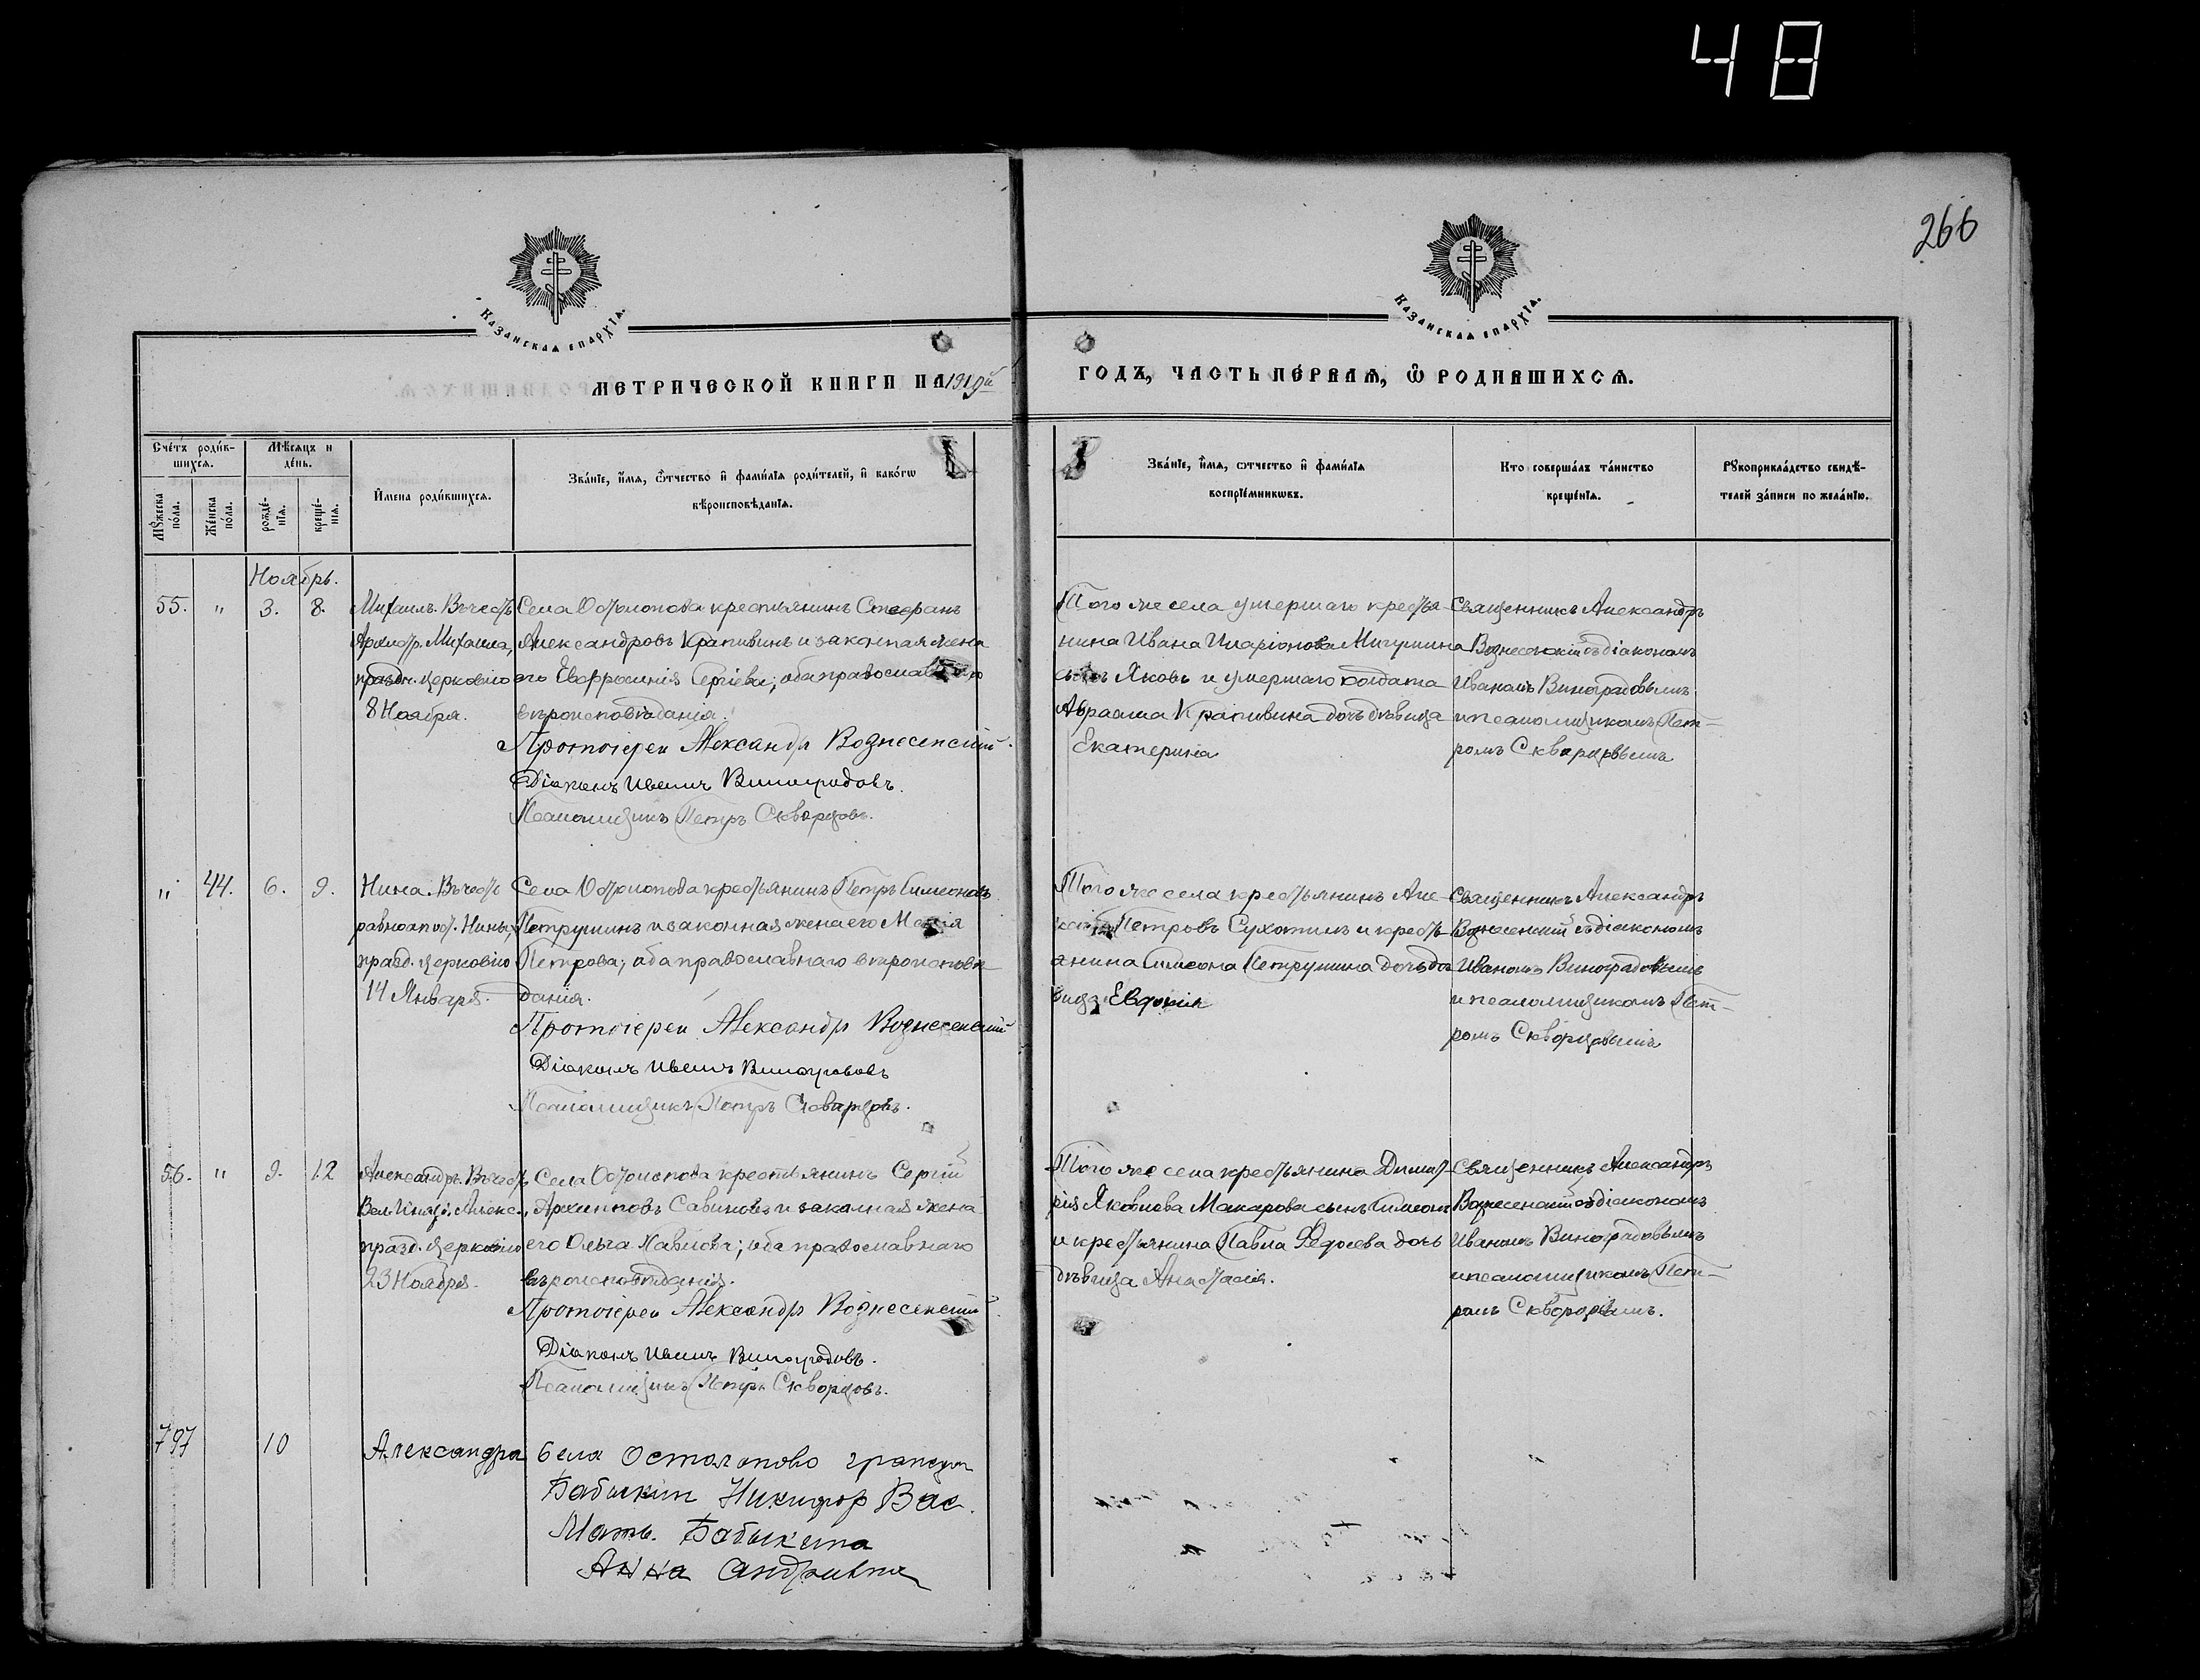 48
266
КАЗАНСКАѦ ЕПАРХІѦ.
КАЗАНСКАѦ ЕПАРХІѦ.
МЕТРИЧЕСКОЙ КНИГИ НА 1919й
ГОДЪ, ЧАСТЬ ПЕ́РВАѦ, Ѽ РОДИВШИХСѦ.
Сче́тъ роди́в-
шихсѧ.
Мѣ́сѧцъ и
де́нь.
Мꙋ́жеска по́ла.
Же́нска по́ла.
рожде́-
нїѧ.
креще́-
нїѧ.
И́мена роди́вшихсѧ.
Зва́нїе, и́мѧ, ѻ́тчество и фами́лїѧ роди́телей, и како́гѡ
вѣроисповѣ́данїѧ.
Зва́нїе, и́мѧ, ѻтчество и фами́лїѧ
воспрїе́мникѡвъ.
Кто соверша́лъ та́инство
креще́нїѧ.
Рꙋкоприкла́дство свидѣ́-
телей за́писи по жела́нїю.
Ноябрь.
55. " 3. 8.
Михаилъ. Въ честь
Архистр. Михаила,
праздн. церковію
8 Ноября.
Села Остолопова крестьянинъ Стефанъ
Александровъ Крапивинъ и законная жена
его Евфросинія Сергіева; оба православнаго
вѣроисповѣданія.
Протоіерей Александръ Вознесенскій.
Діаконъ Иванъ Виноградовъ.
Псаломщикъ Петръ Скворцовъ.
Того же села умершаго кресть-
нина Ивана Иларіонова Мигушина
сынъ Яковъ и умершаго солдата
Авраама Крапивина дочь дѣвица
Екатерина
Священникъ Александръ
Вознесенскій съ діакономъ
Иваномъ Виноградовымъ
и псаломщикомъ Пет-
ромъ Скворцовымъ
" 44. 6. 9.
Нина. Въ честь
равноапост. Нины,
празд. церковію
14 Января.
Села Остолопова крестьянинъ Петръ Симеоновъ
Петрушинъ и законная жена его Марія
Петрова; оба православнаго вѣроисповѣ-
данія.
Протоіерей Александръ Вознесенскій
Діаконъ Иванъ Виноградовъ
Псаломщикъ Петръ Скворцовъ.
Того же села крестьянинъ Але-
ксѣй Петровъ Сухотинъ и кресть-
янина Симеона Петрушина дочь дѣ-
вица Евдокія
Священникъ Александръ
Вознесенскій съ діакономъ
Иваномъ Виноградовымъ
и псаломщикомъ Пет-
ромъ Скворцовымъ
56. " 9. 12
Александръ. Въ честь
Вел. Князя. Алекс.,
празд. церковію
23 Ноября.
Села Остолопова крестьянинъ Сергій
Архиповъ Савиновъ и законная жена
его Ольга Павлова; оба православнаго
вѣроисповѣданія.
Протоіерей Александръ Вознесенскій.
Діаконъ Иванъ Виноградовъ.
Псаломщикъ Петръ Скворцовъ.
Того же села крестьянина Димит-
рія Яковлева Макарова сынъ Симеонъ
и крестьянина Павла Федосева дочь
дѣвица Анастасія.
Священникъ Александръ
Вознесенскій съ діакономъ
Иваномъ Виноградовымъ
и псаломщикомъ Пет-
ромъ Скворцовымъ.
797 10
Александра
Села Остолопово гражд
Бабыкин Никифор Вас.
Мать. Бабыкина
Анна